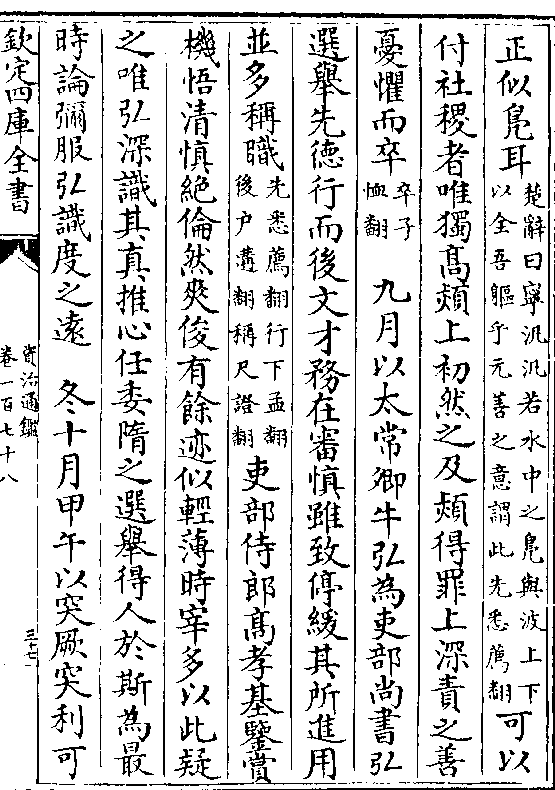 正似鳬耳楚辭曰寧汎汎若水中之鳬與波上下以全吾軀乎元善之意謂此先悉薦翻可以
付社稷者唯獨髙熲上初然之及熲得罪上深責之善
憂懼而卒卒子恤翻　九月以太常卿牛弘為吏部尚書弘
選舉先徳行而後文才務在審慎雖致停緩其所進用
並多稱職先悉薦翻行下孟翻後户遘翻稱尺證翻吏部侍郎髙孝基鑒賞
機悟清慎絶倫然爽俊有餘迹似輕薄時宰多以此疑
之唯弘深識其真推心任委隋之選舉得人於斯為最
時論彌服弘識度之遠　冬十月甲午以突厥突利可
欽定四庫全書
資治通鑑
卷一百七十八
三十七